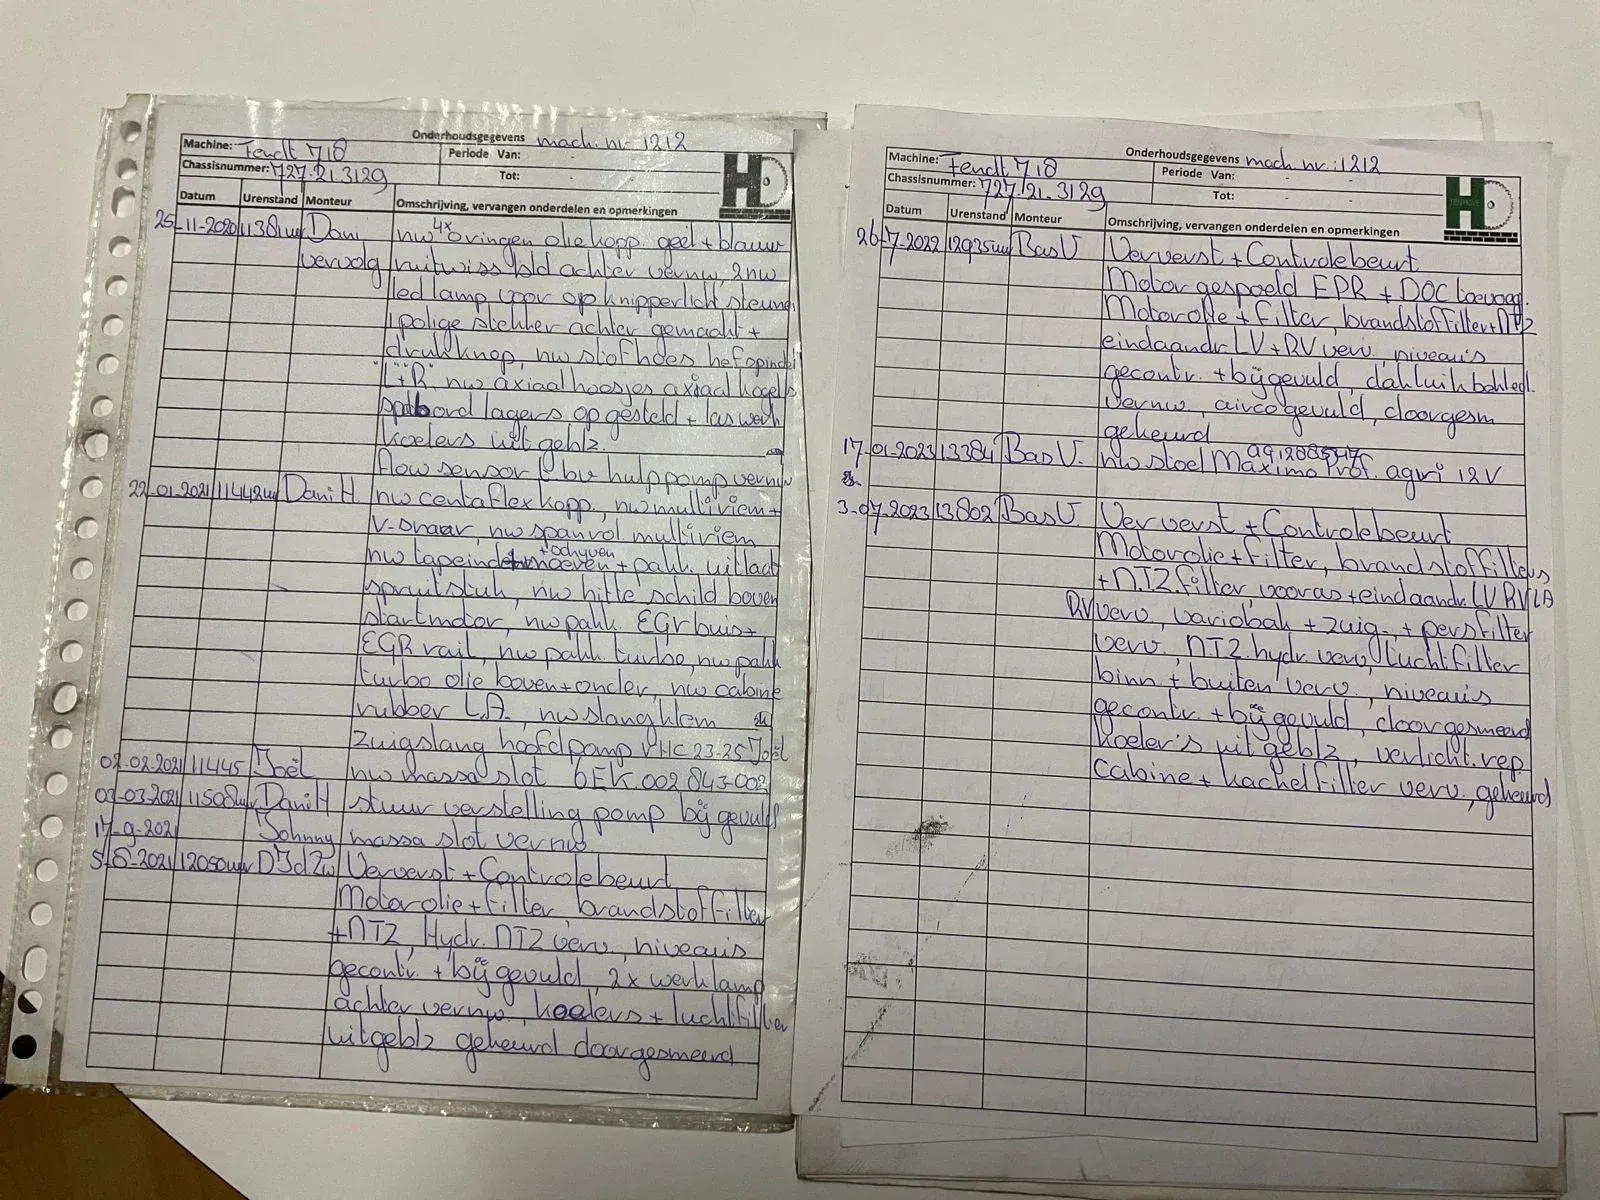 Onderhoudsgegevens mach. nr. 1212
Machine: Fendt 718
Periode Van: - -
Chassisnummer: 727.21.3129
Tot: - -
HD
Datum Urenstand Monteur Omschrijving, vervangen onderdelen en opmerkingen
25-11-2020 11381uur Dani nw 4x oringen oliekopp. geel + blauw
vervolg ruitwiss bld achter vernw, 2 nw
led lamp voor op knipperlicht steunen
1 polige stekker achter gemaakt +
drukknop, nw stofhoes hefspindel
"L+R" nw axiaal hoesjes axiaal kogels
spatbord lagers op gesteld + las werk
koelers uit geblz.
flow sensor tbv hulppomp vernw
22-01-2021 11442uur Dani H nw centaflex kopp., nw multiriem +
V-snaar, nw spanrol multiriem
nw tapeinden + schijven moeren + pakk. uitlaat
spruitstuk, nw hitte schild boven
startmotor, nw pakk. EGR buis +
EGR rail, nw pakk. turbo, nw pakk
turbo olie boven + onder, nw cabine
rubber L.A., nw slangklem
zuigslang hoofdpomp VHC 23-25 Joël
02-02-2021 11445 Joël nw massa slot 6EK.002 843-002
03-03-2021 11508uur Dani H stuur verstelling pomp bijgevuld
17-9-202 Johnny massa slot vernw
5-8-2021 12050uur DJdZw Ververst + Controlebeurt
Motorolie + filter, brandstoffilter
+ NTZ, Hydr. NTZ verv, niveau's
gecontr. + bijgevuld, 2x werklamp
achter vernw, koelers + luchtfilter
uitgeblz gekeurd doorgesmeerd
Onderhoudsgegevens mach. nr.: 1212
Machine: Fendt 718
Periode Van: - -
Chassisnummer: 727.21.3129
Tot: - -
HD
Datum Urenstand Monteur Omschrijving, vervangen onderdelen en opmerkingen
26-7-2022 12935uur Bas V Ververst + Controlebeurt
Motor gespoeld EPR + DOC toevoeg.
Motorolie + filter, brandstoffilter + NTZ
eindaandr LV + RV verv, niveau's
gecontr. + bijgevuld, dakluik bekled.
vernw, airco gevuld, doorgesm
gekeurd
17-01-2023 13384 Bas V. nw stoel Maximo Prof. agri 12V
3-07-2023 13802 Bas V. Ververst + Controlebeurt
Motorolie + filter, brandstoffilters
+ NTZ.filter, vooras + eindaandr. LV RV LA
RV verv, variobak + zuig. + persfilter
verv, NTZ. hydr. verv, luchtfilter
binn + buiten verv., niveau's
gecontr. + bijgevuld, doorgesmeerd
koeler's uit geblz, verlicht. rep
cabine + kachelfilter verv., gekeurd